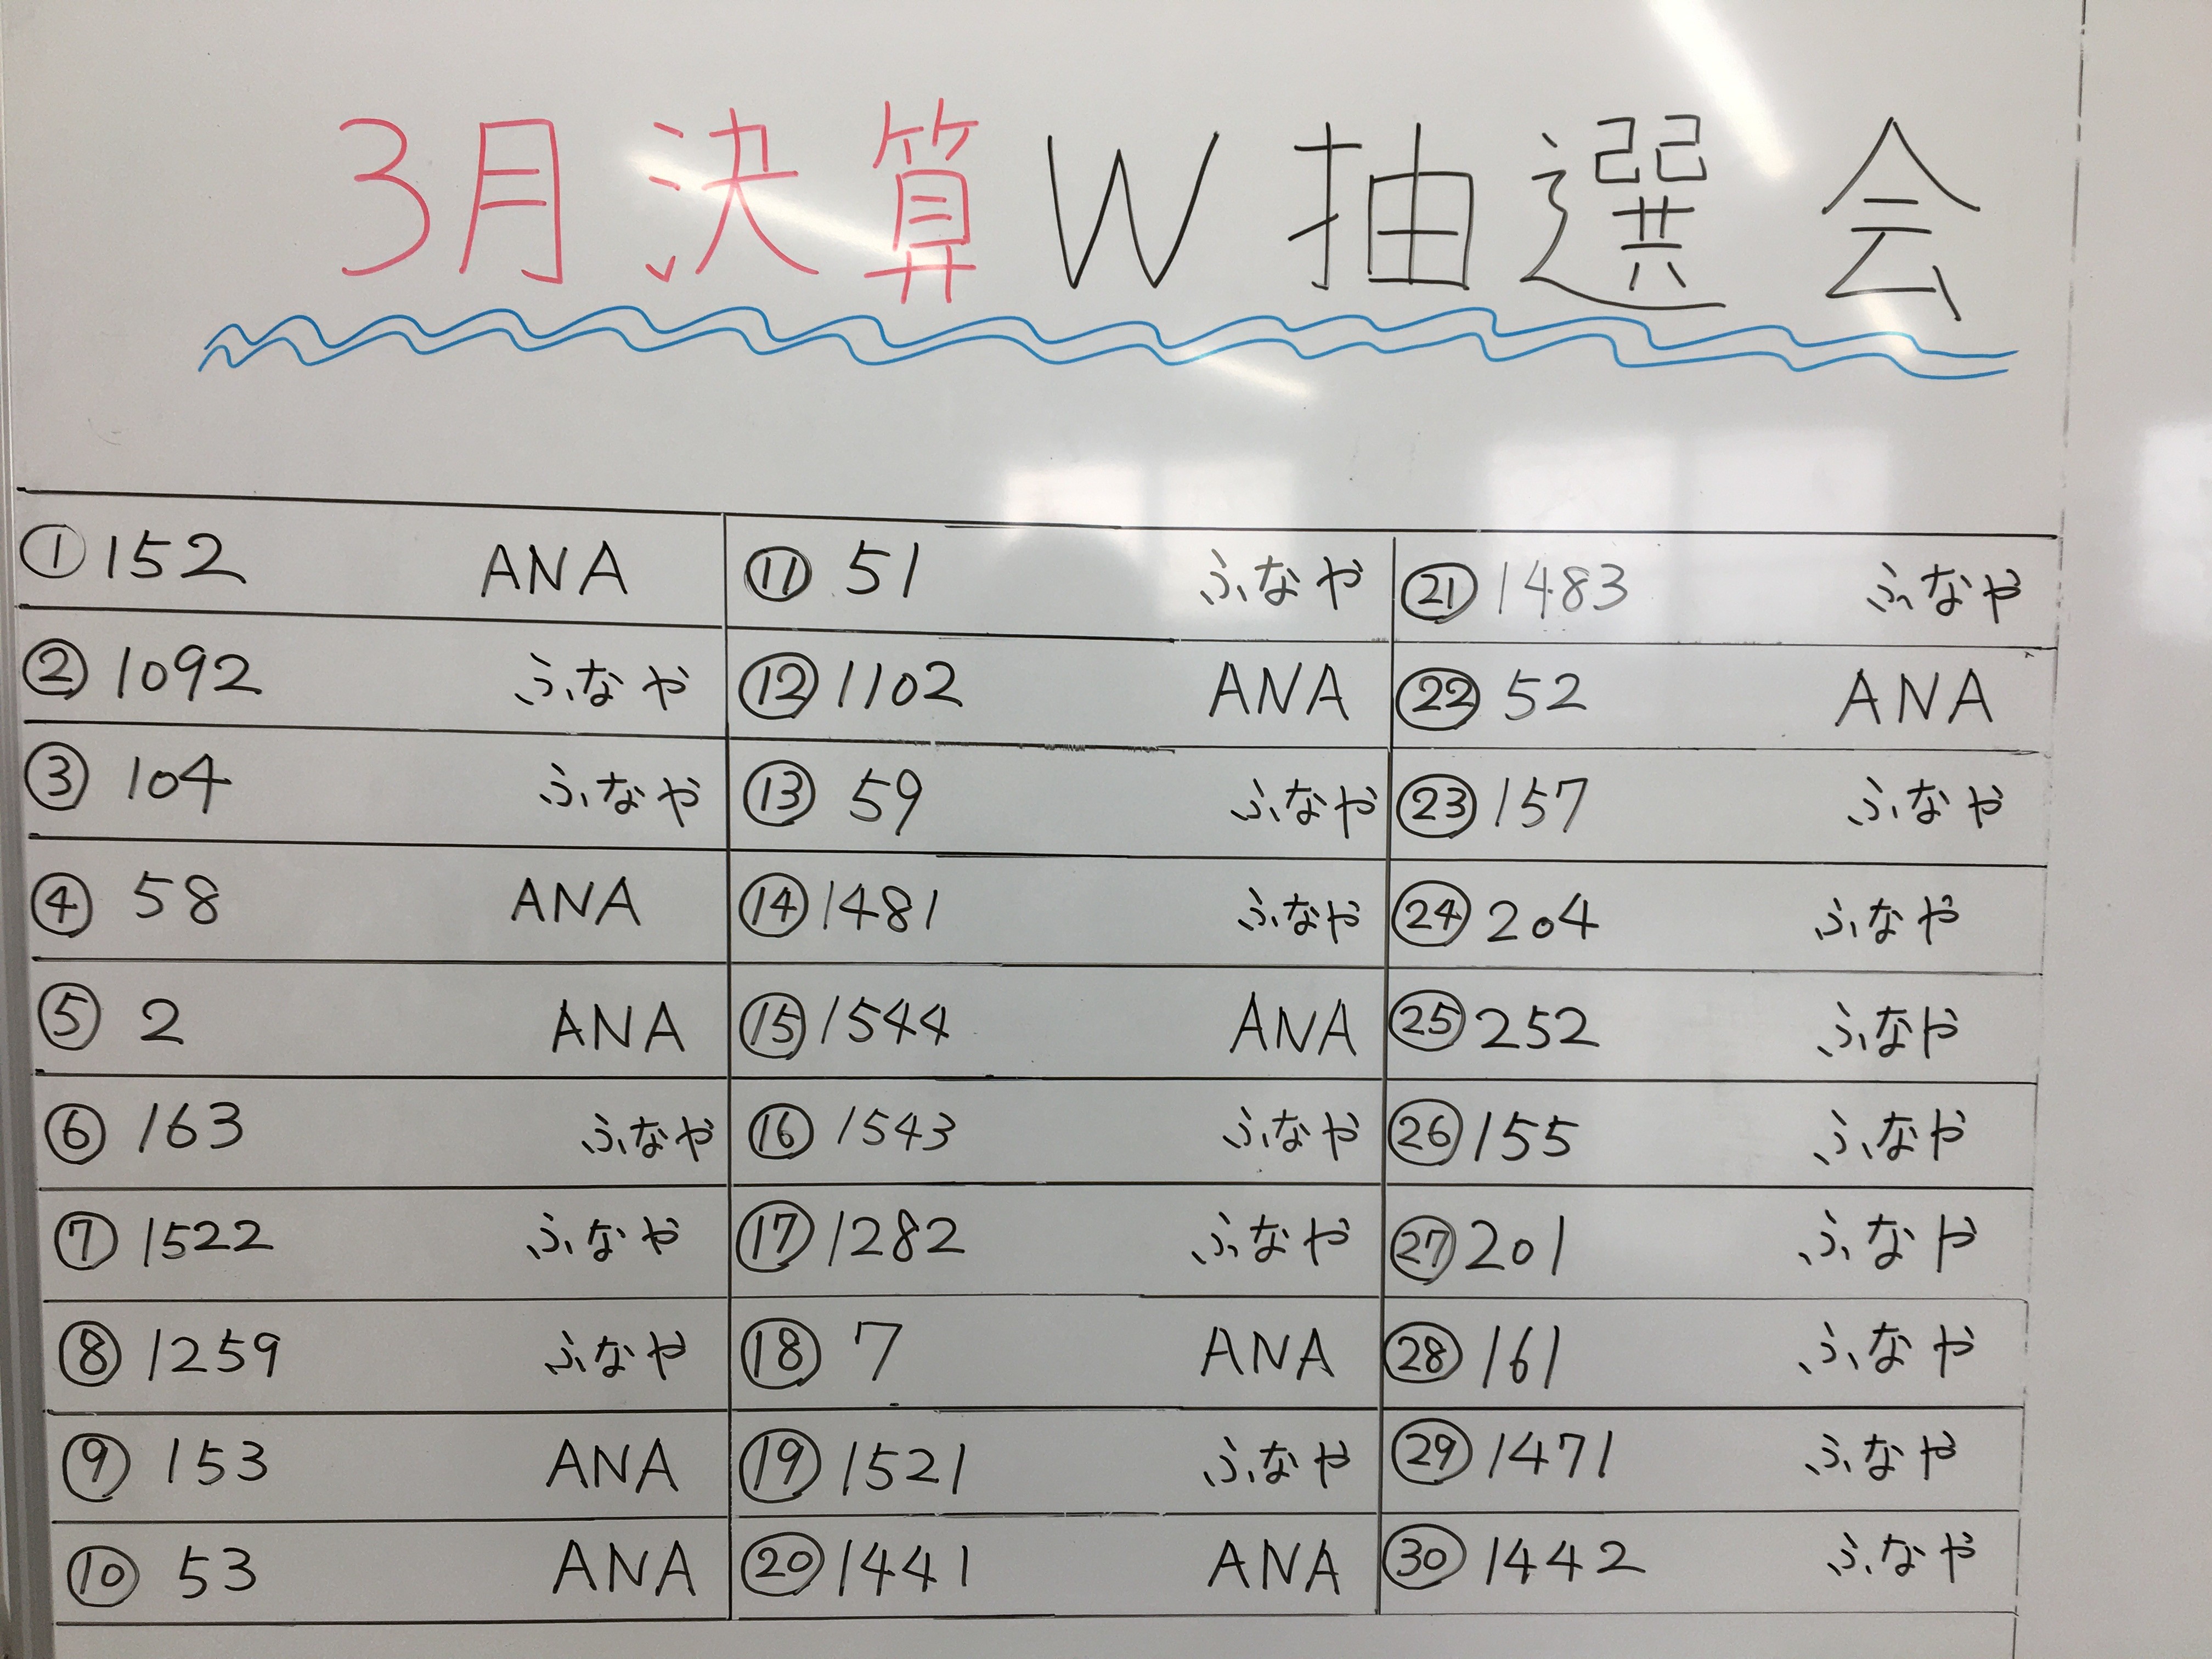 3月決算W抽選会
① 152 ANA
② 1092 ふなや
③ 104 ふなや
④ 58 ANA
⑤ 2 ANA
⑥ 163 ふなや
⑦ 1522 ふなや
⑧ 1259 ふなや
⑨ 153 ANA
⑩ 53 ANA
⑪ 51 ふなや
⑫ 1102 ANA
⑬ 59 ふなや
⑭ 1481 ふなや
⑮ 1544 ANA
⑯ 1543 ふなや
⑰ 1282 ふなや
⑱ 7 ANA
⑲ 1521 ふなや
⑳ 1441 ANA
㉑ 1483 ふなや
㉒ 52 ANA
㉓ 157 ふなや
㉔ 204 ふなや
㉕ 252 ふなや
㉖ 155 ふなや
㉗ 201 ふなや
㉘ 161 ふなや
㉙ 1471 ふなや
㉚ 1442 ふなや